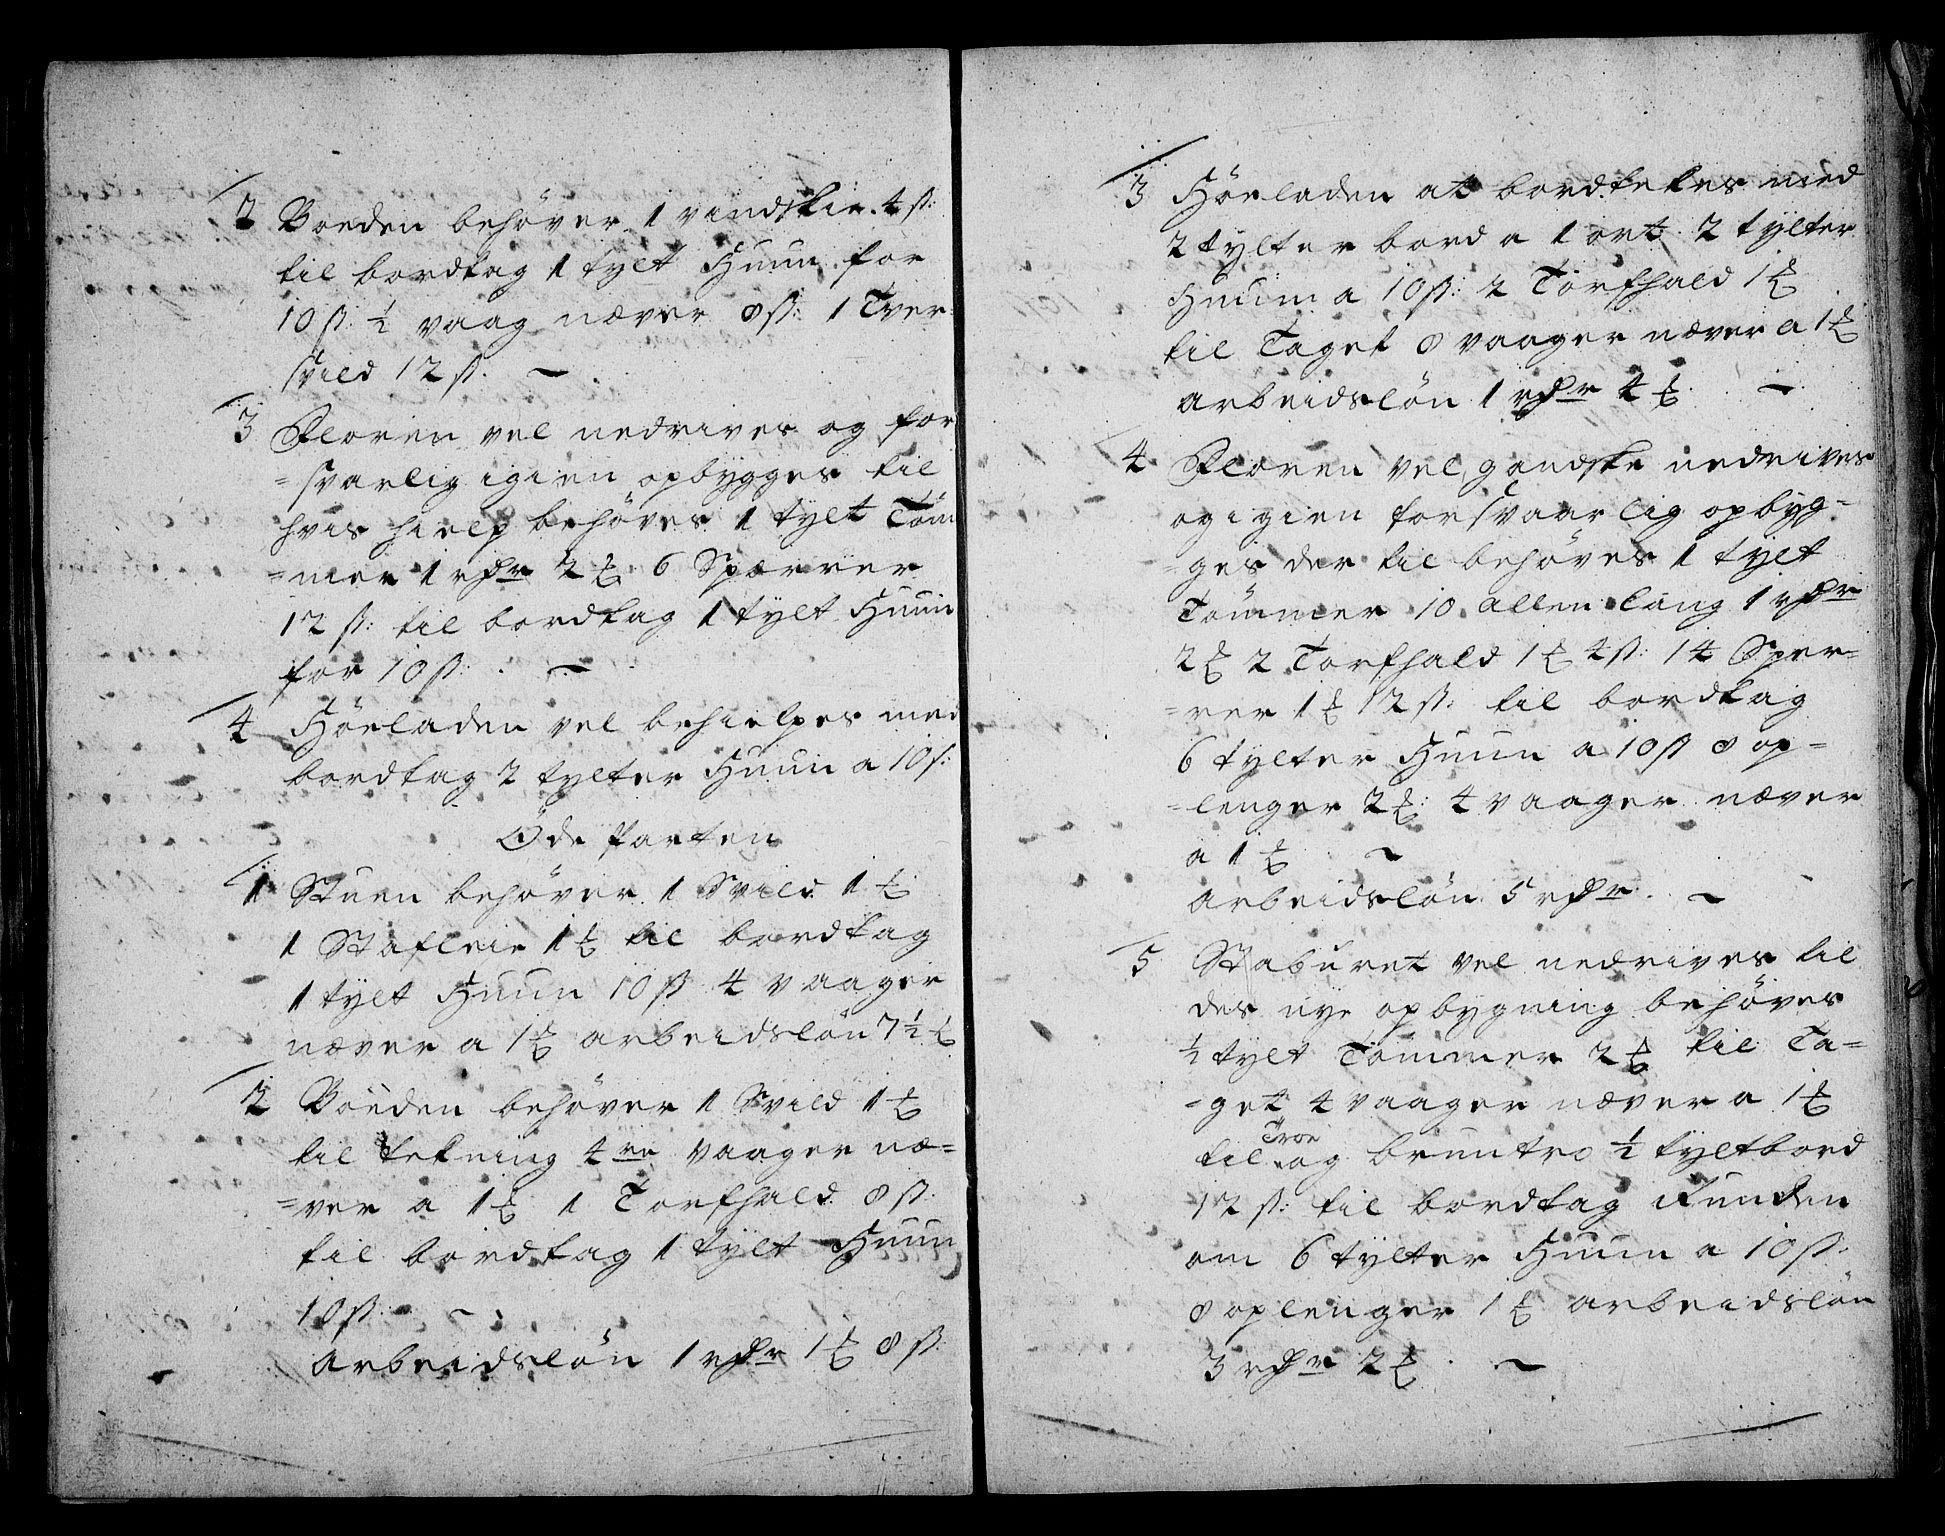 2 Boeden behöver 1 vindskie 4 ß:
til bordtag 1 tylt Huun for
10 ß: ½ vaag næver 8 ß: 1 Tver
Svild 12 ß.
3 Floren vel nedrives og for
=svarlig igien opbygges til
hvis hielp behöves 1 tylt Töm
=mer 1 rdr 2 ₰ 6 Spærrer
12 ß: til bordtag 1 tylt Huun
for 10 ß:
4 Höeladen vel behielpes med
bordtag 2 tylter Huun a 10 ß:
Öde Parten
1 Stuen behöver 1 Svild 1 ₰
1 Stafleie 1 ₰ til bordtag
1 tylt Huun 10 ß 4 vaager
næver a 1 ₰ arbeidslön 7 ½ ₰
2 Boeden behöver 1 Svild 1 ₰
til tekning 4re vaager næ=
=ver a 1 ₰ 1 Torfhald 8 ß:
til bordtag 1 tylt Huun
10 ß:
arbeidslön 1 rdr 1 ₰ 8 ß:
3 Höeladen at bordtekes med
2 tylter bord a 1 ort 2 tylter
Huun a 10 ß: 2 Torfhald 1 ₰
til Taget 8 vaager næver a 1 ₰
arbeidslön 1 rdr 4 ₰
4 Floren vel gandske nedrives
og igien forsvaarlig opbyg=
=ges der til behöves 1 tylt
Tömmer 10 allen lang 1 rdr
2 ₰ 2 Torfhald 1 ₰ 4 ß: 14 Sper=
=rer 1 ₰ 12 ß: til bordtag
6 tylter Huun a 10 ß 8 op=
=lenger 2 ₰: 4 vaager næver
a 1 ₰
arbeidslön 5 rdr.
5 Staburet vel nedrives til
des nye opbygning behöves
½ tylt Tömmer 2 ₰ til Ta=
=get 4 vaager næver a 1 ₰
Troe
til og bruntro ½ tylt bord
12 ß: til bordtag Runden
om 6 tylter Huun a 10 ß:
8 oplenger 1 ₰ arbeidslön
3 rdr 2 ₰